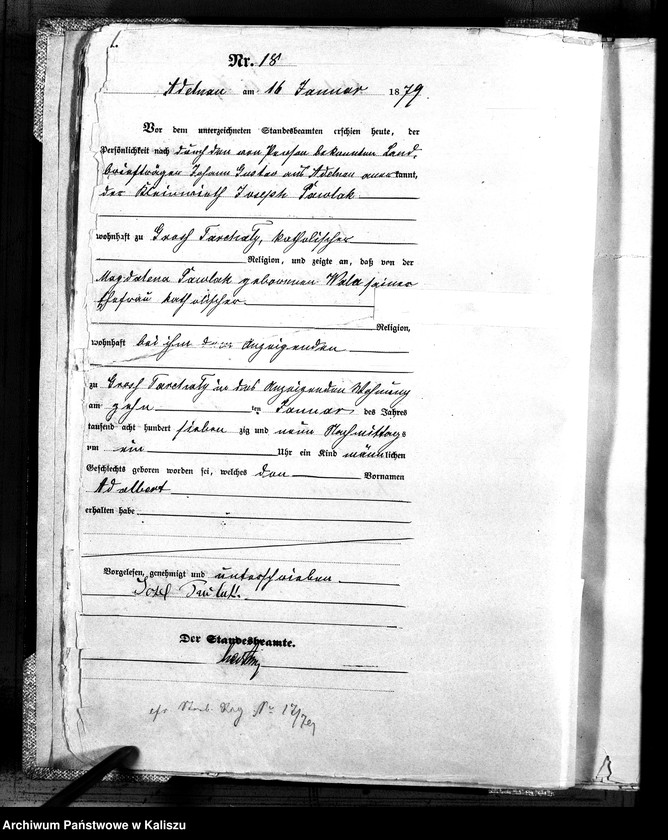 Nr. 18
Adelnau am 16 Januar 1879.
Vor dem unterzeichneten Standesbeamten erschien heute, der
Persönlichkeit nach durch den von Person bekannten Land-
briefträger Johann aus Adelnau anerkannt,
der Kleinwirth Joseph Pawlak
wohnhaft zu Groß Tarchaly, katholischer
Religion, und zeigte an, daß von der
Magdalena Pawlak geborenen Wala seiner
Ehefrau katholischer
Religion,
wohnhaft bei ihm dem Anzeigenden
zu Groß Tarchaly in des Anzeigenden Wohnung
am zehn ten Januar des Jahres
tausend acht hundert sieben zig und neun Nachmittags
um ein Uhr ein Kind männlichen
Geschlechts geboren worden sei, welches den Vornamen
Adalbert
erhalten habe
Vorgelesen, genehmigt und unterschrieben
Der Standesbeamte.
Archiwum Państwowe w Kaliszu